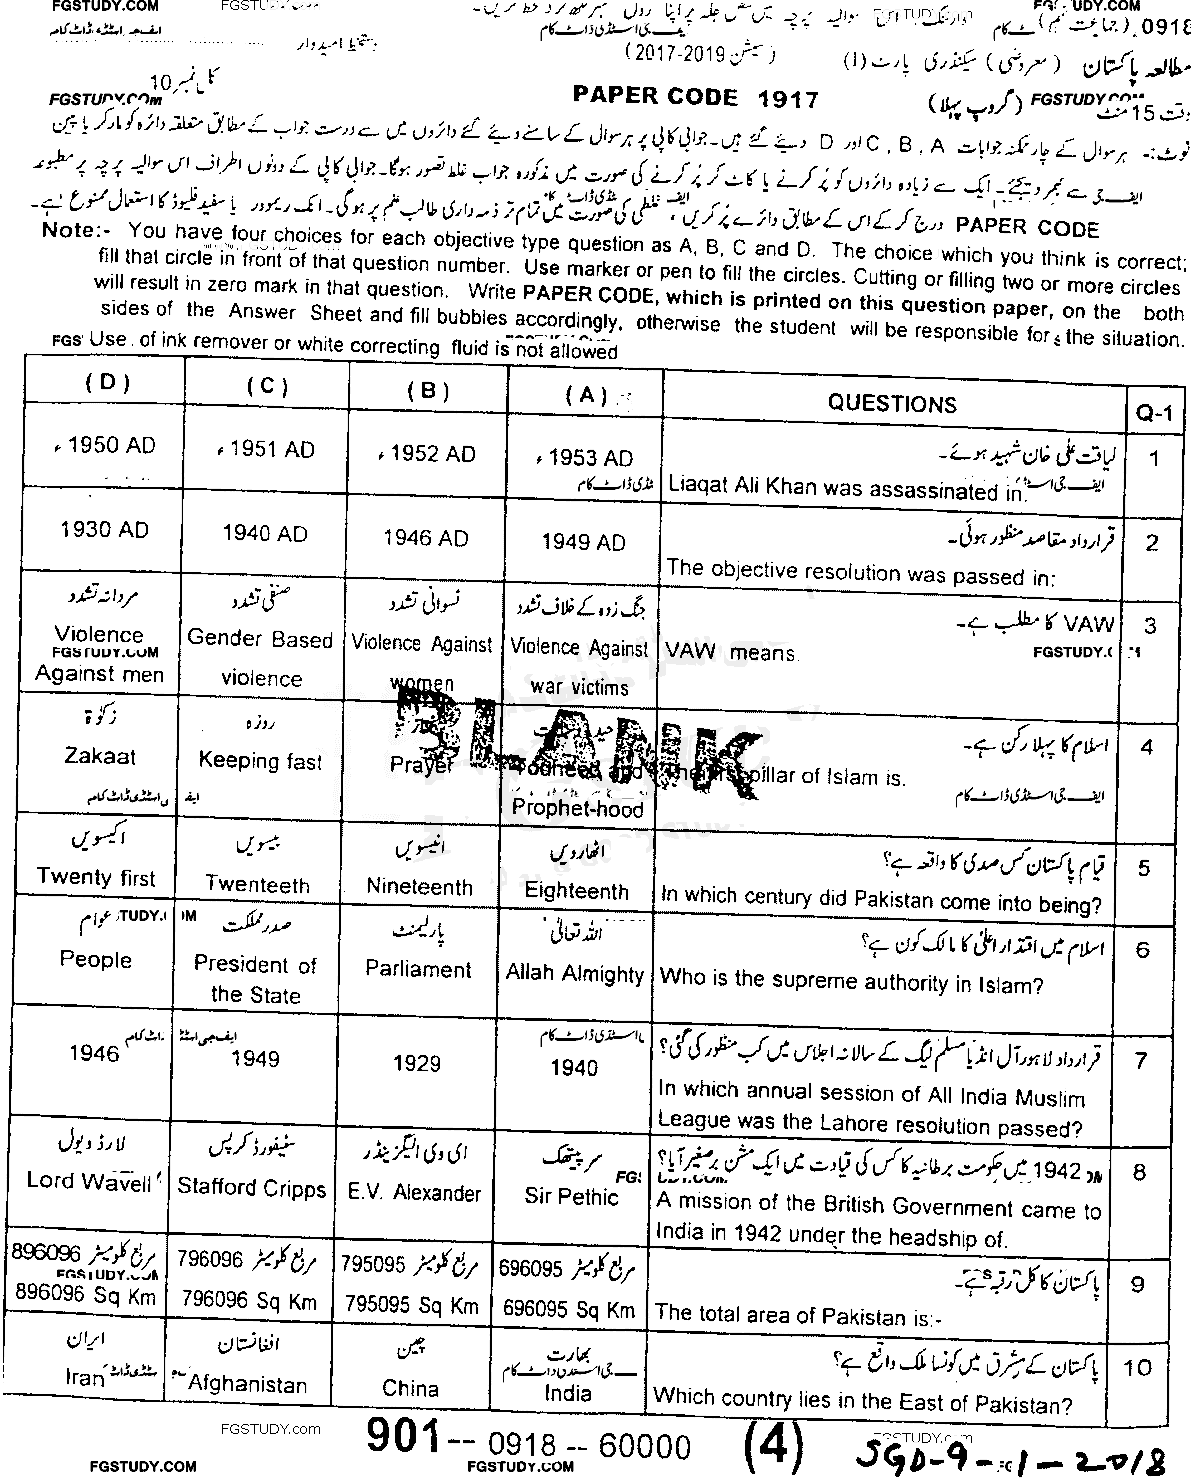 FGSTUDY.COM
FGSTUDY.COM
0918
دستخط امیدوار
(سیشن 2019-2017)
مطالعہ پاکستان (معروضی) سیکنڈری پارٹ (I)
کل نمبر 10
PAPER CODE 1917
(گروپ پہلا)
وقت 15 منٹ
FGSTUDY.COM
FGSTUDY.COM
نوٹ:- ہر سوال کے چار ممکنہ جوابات A ، B ، C اور D دیئے گئے ہیں۔ جوابی کاپی پر ہر سوال کے سامنے دیئے گئے دائروں میں سے درست جواب کے مطابق متعلقہ دائرہ کو مارکر یا پین
سے بھر دیجئے۔ ایک سے زیادہ دائروں کو پُر کرنے یا کاٹ کر پُر کرنے کی صورت میں مذکورہ جواب غلط تصور ہوگا۔ جوابی کاپی کے دونوں اطراف اس سوالیہ پرچہ پر مطبوعہ
PAPER CODE درج کر کے اس کے مطابق دائرے پُر کریں، غلطی کی صورت میں تمام تر ذمہ داری طالب علم پر ہوگی۔ انک ریموور یا سفید فلیوڈ کا استعمال ممنوع ہے۔
Note:- You have four choices for each objective type question as A, B, C and D. The choice which you think is correct;
fill that circle in front of that question number. Use marker or pen to fill the circles. Cutting or filling two or more circles
will result in zero mark in that question. Write PAPER CODE, which is printed on this question paper, on the both
sides of the Answer Sheet and fill bubbles accordingly, otherwise the student will be responsible for the situation.
Use of ink remover or white correcting fluid is not allowed
(D) (C) (B) (A) QUESTIONS Q-1
1950 AD ء 1951 AD ء 1952 AD ء 1953 AD ء لیاقت علی خان شہید ہوئے۔ 1
Liaqat Ali Khan was assassinated in:
1930 AD 1940 AD 1946 AD 1949 AD قرارداد مقاصد منظور ہوئی۔ 2
The objective resolution was passed in:
مردانہ تشدد صنفی تشدد نسوانی تشدد جنگ زدہ کے خلاف تشدد VAW کا مطلب ہے۔ 3
Violence Gender Based Violence Against Violence Against VAW means.
FGSTUDY.COM
Against men violence women war victims
زکوٰۃ روزہ اسلام کا پہلا رکن ہے۔ 4
BLANK
Zakaat Keeping fast Prayer Touheed and The first pillar of Islam is.
Prophet-hood
اکیسویں بیسویں انیسویں اٹھارویں قیام پاکستان کس صدی کا واقعہ ہے؟ 5
Twenty first Twenteeth Nineteenth Eighteenth In which century did Pakistan come into being?
عوام صدر مملکت پارلیمنٹ اللہ تعالیٰ اسلام میں اقتدار اعلیٰ کا مالک کون ہے؟ 6
People President of Parliament Allah Almighty Who is the supreme authority in Islam?
the State
قرارداد لاہور آل انڈیا مسلم لیگ کے سالانہ اجلاس میں کب منظور کی گئی؟ 7
1946 1949 1929 1940
In which annual session of All India Muslim
League was the Lahore resolution passed?
لارڈ ویول سٹیفورڈ کرپس ای وی الیگزینڈر سر پیتھک 1942 میں حکومت برطانیہ کا کس کی قیادت میں ایک مشن برصغیر آیا؟ 8
Lord Wavell Stafford Cripps E.V. Alexander Sir Pethic A mission of the British Government came to
India in 1942 under the headship of.
896096 مربع کلومیٹر 796096 مربع کلومیٹر 795095 مربع کلومیٹر 696095 مربع کلومیٹر پاکستان کا کل رقبہ ہے۔ 9
FGSTUDY.COM
896096 Sq Km 796096 Sq Km 795095 Sq Km 696095 Sq Km The total area of Pakistan is:-
ایران افغانستان چین بھارت پاکستان کے مشرق میں کونسا ملک واقع ہے؟ 10
Iran Afghanistan China India Which country lies in the East of Pakistan?
FGSTUDY.com 901-- 0918 -- 60000 (4) SGD-9-1-2018
FGSTUDY.COM FGSTUDY.COM